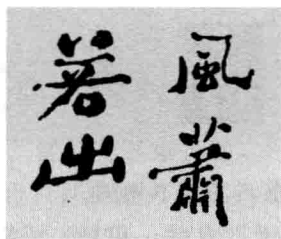 風蕭
若出